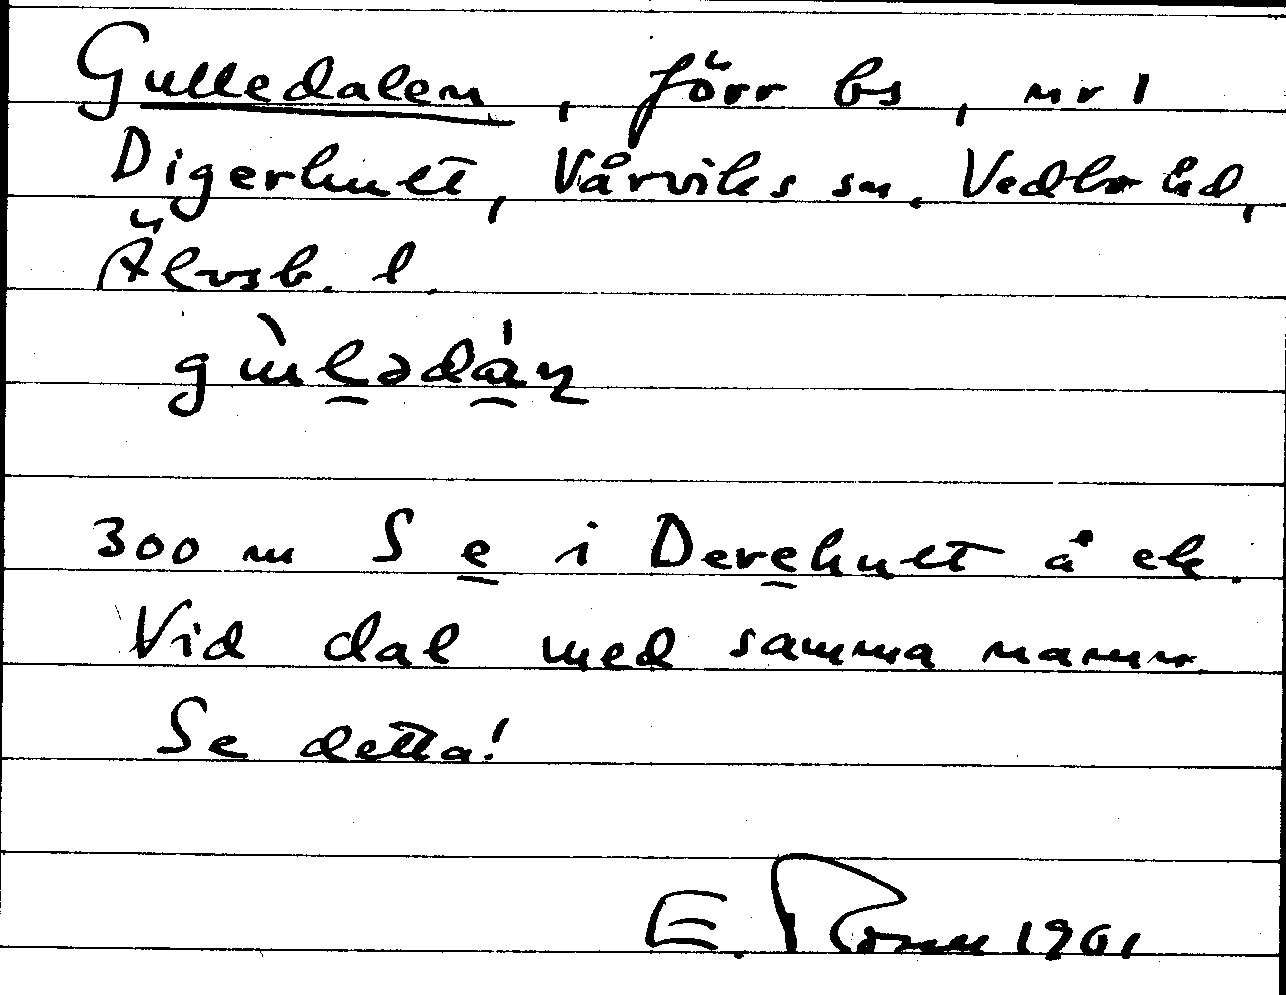 Gulledalen, förr bs, nr 1
Digerhult, Vårviks sn. Vedbo hd,
Älvsb. l.
gùlədáṇ
300 m S e i Derehult å ek.
Vid dal med samma namn
Se detta!
E. 1961